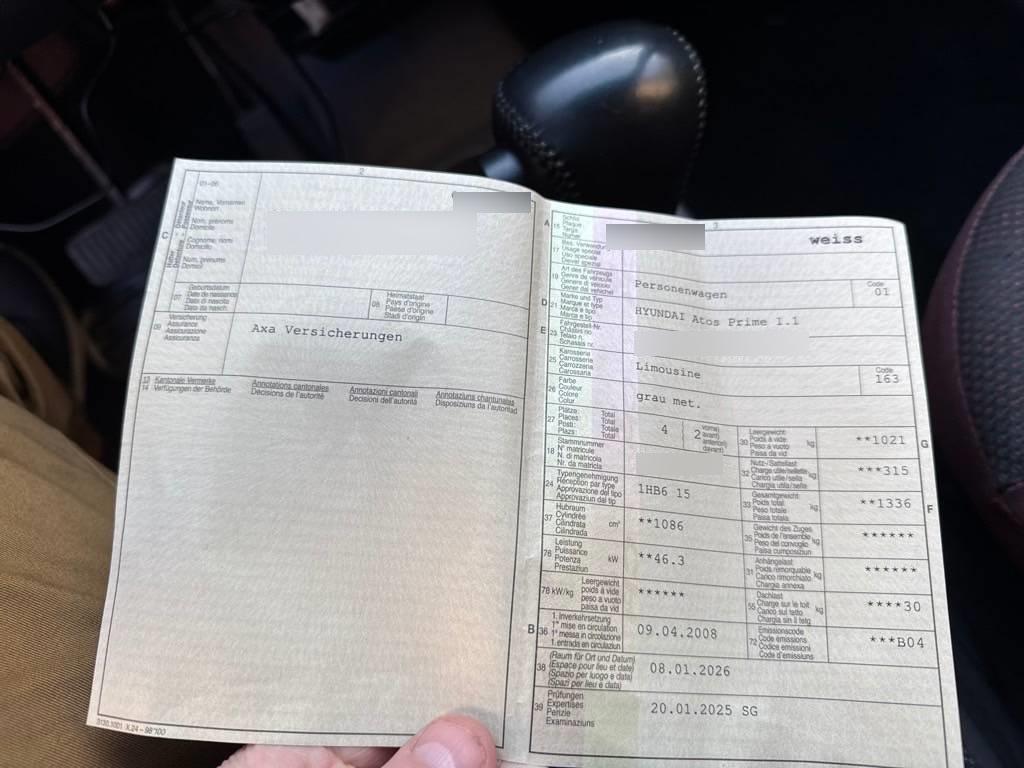 2
C
01-06
Name, Vornamen
Wohnort
Nom, prénoms
Domicile
Cognome, nomi
Domicilio
Num, prenums
Domicil
07
Geburtsdatum
Date de naissance
Data di nascita
Data da nasch.
08
Heimatstaat
Pays d'origine
Paese d'origine
Stadi d'origin
09
Versicherung
Assurance
Assicurazione
Assicuranza
Axa Versicherungen
13 Kantonale Vermerke
14 Verfügungen der Behörde
Annotations cantonales
Décisions de l'autorité
Annotazioni cantonali
Decisioni dell'autorità
Annotaziuns chantunalas
Disposiziuns da l'autoritad
3
A
15
Schild
Plaque
Targa
Numer
weiss
17
Bes. Verwendung
Usage spécial
Uso speciale
Diever spezial
19
Art des Fahrzeugs
Genre de véhicule
Genere di veicolo
Gener dal vehichel
Personenwagen
Code
01
D
21
Marke und Typ
Marque et type
Marca e tipo
Marca e tip
HYUNDAI Atos Prime 1.1
E
23
Fahrgestell-Nr.
Châssis no
Telaio n.
Schassis nr.
25
Karosserie
Carrosserie
Carrozzeria
Carossaria
Limousine
Code
163
26
Farbe
Couleur
Colore
Colur
grau met.
27
Plätze: Total
Places: Total
Posti: Totale
Plazs: Total
4
2
vorne
avant
anteriori
davant
30
Leergewicht
Poids à vide
Peso a vuoto
Paisa da vid
kg
**1021
G
18
Stammnummer
N° matricule
N. di matricola
Nr. da matricla
32
Nutz-/Sattellast
Charge utile/sellette
Carico utile/sella
Chargia utila/sella
kg
***315
24
Typengenehmigung
Réception par type
Approvazione del tipo
Approvaziun dal tip
1HB6 15
33
Gesamtgewicht
Poids total
Peso totale
Paisa totala
kg
**1336
F
37
Hubraum
Cylindrée
Cilindrata
Cilindrada
cm³
**1086
35
Gewicht des Zuges
Poids de l'ensemble
Peso del convoglio
Paisa cumposiziun
kg
******
76
Leistung
Puissance
Potenza
Prestaziun
kW
**46.3
31
Anhängelast
Poids remorquable
Carico rimorchiato
Chargia annexa
kg
******
78 kW/kg
Leergewicht
poids à vide
peso a vuoto
paisa da vid
******
55
Dachlast
Charge sur le toit
Carico sul tetto
Chargia sin il tetg
kg
****30
B
36
1. Inverkehrsetzung
1re mise en circulation
1a messa in circolazione
1. entrada en circulaziun
09.04.2008
72
Emissionscode
Code émissions
Codice emissioni
Code d'emissiuns
***B04
38
(Raum für Ort und Datum)
(Espace pour lieu et date)
(Spazio per luogo e data)
(Spazi per lieu e data)
08.01.2026
39
Prüfungen
Expertises
Perizie
Examinaziuns
20.01.2025 SG